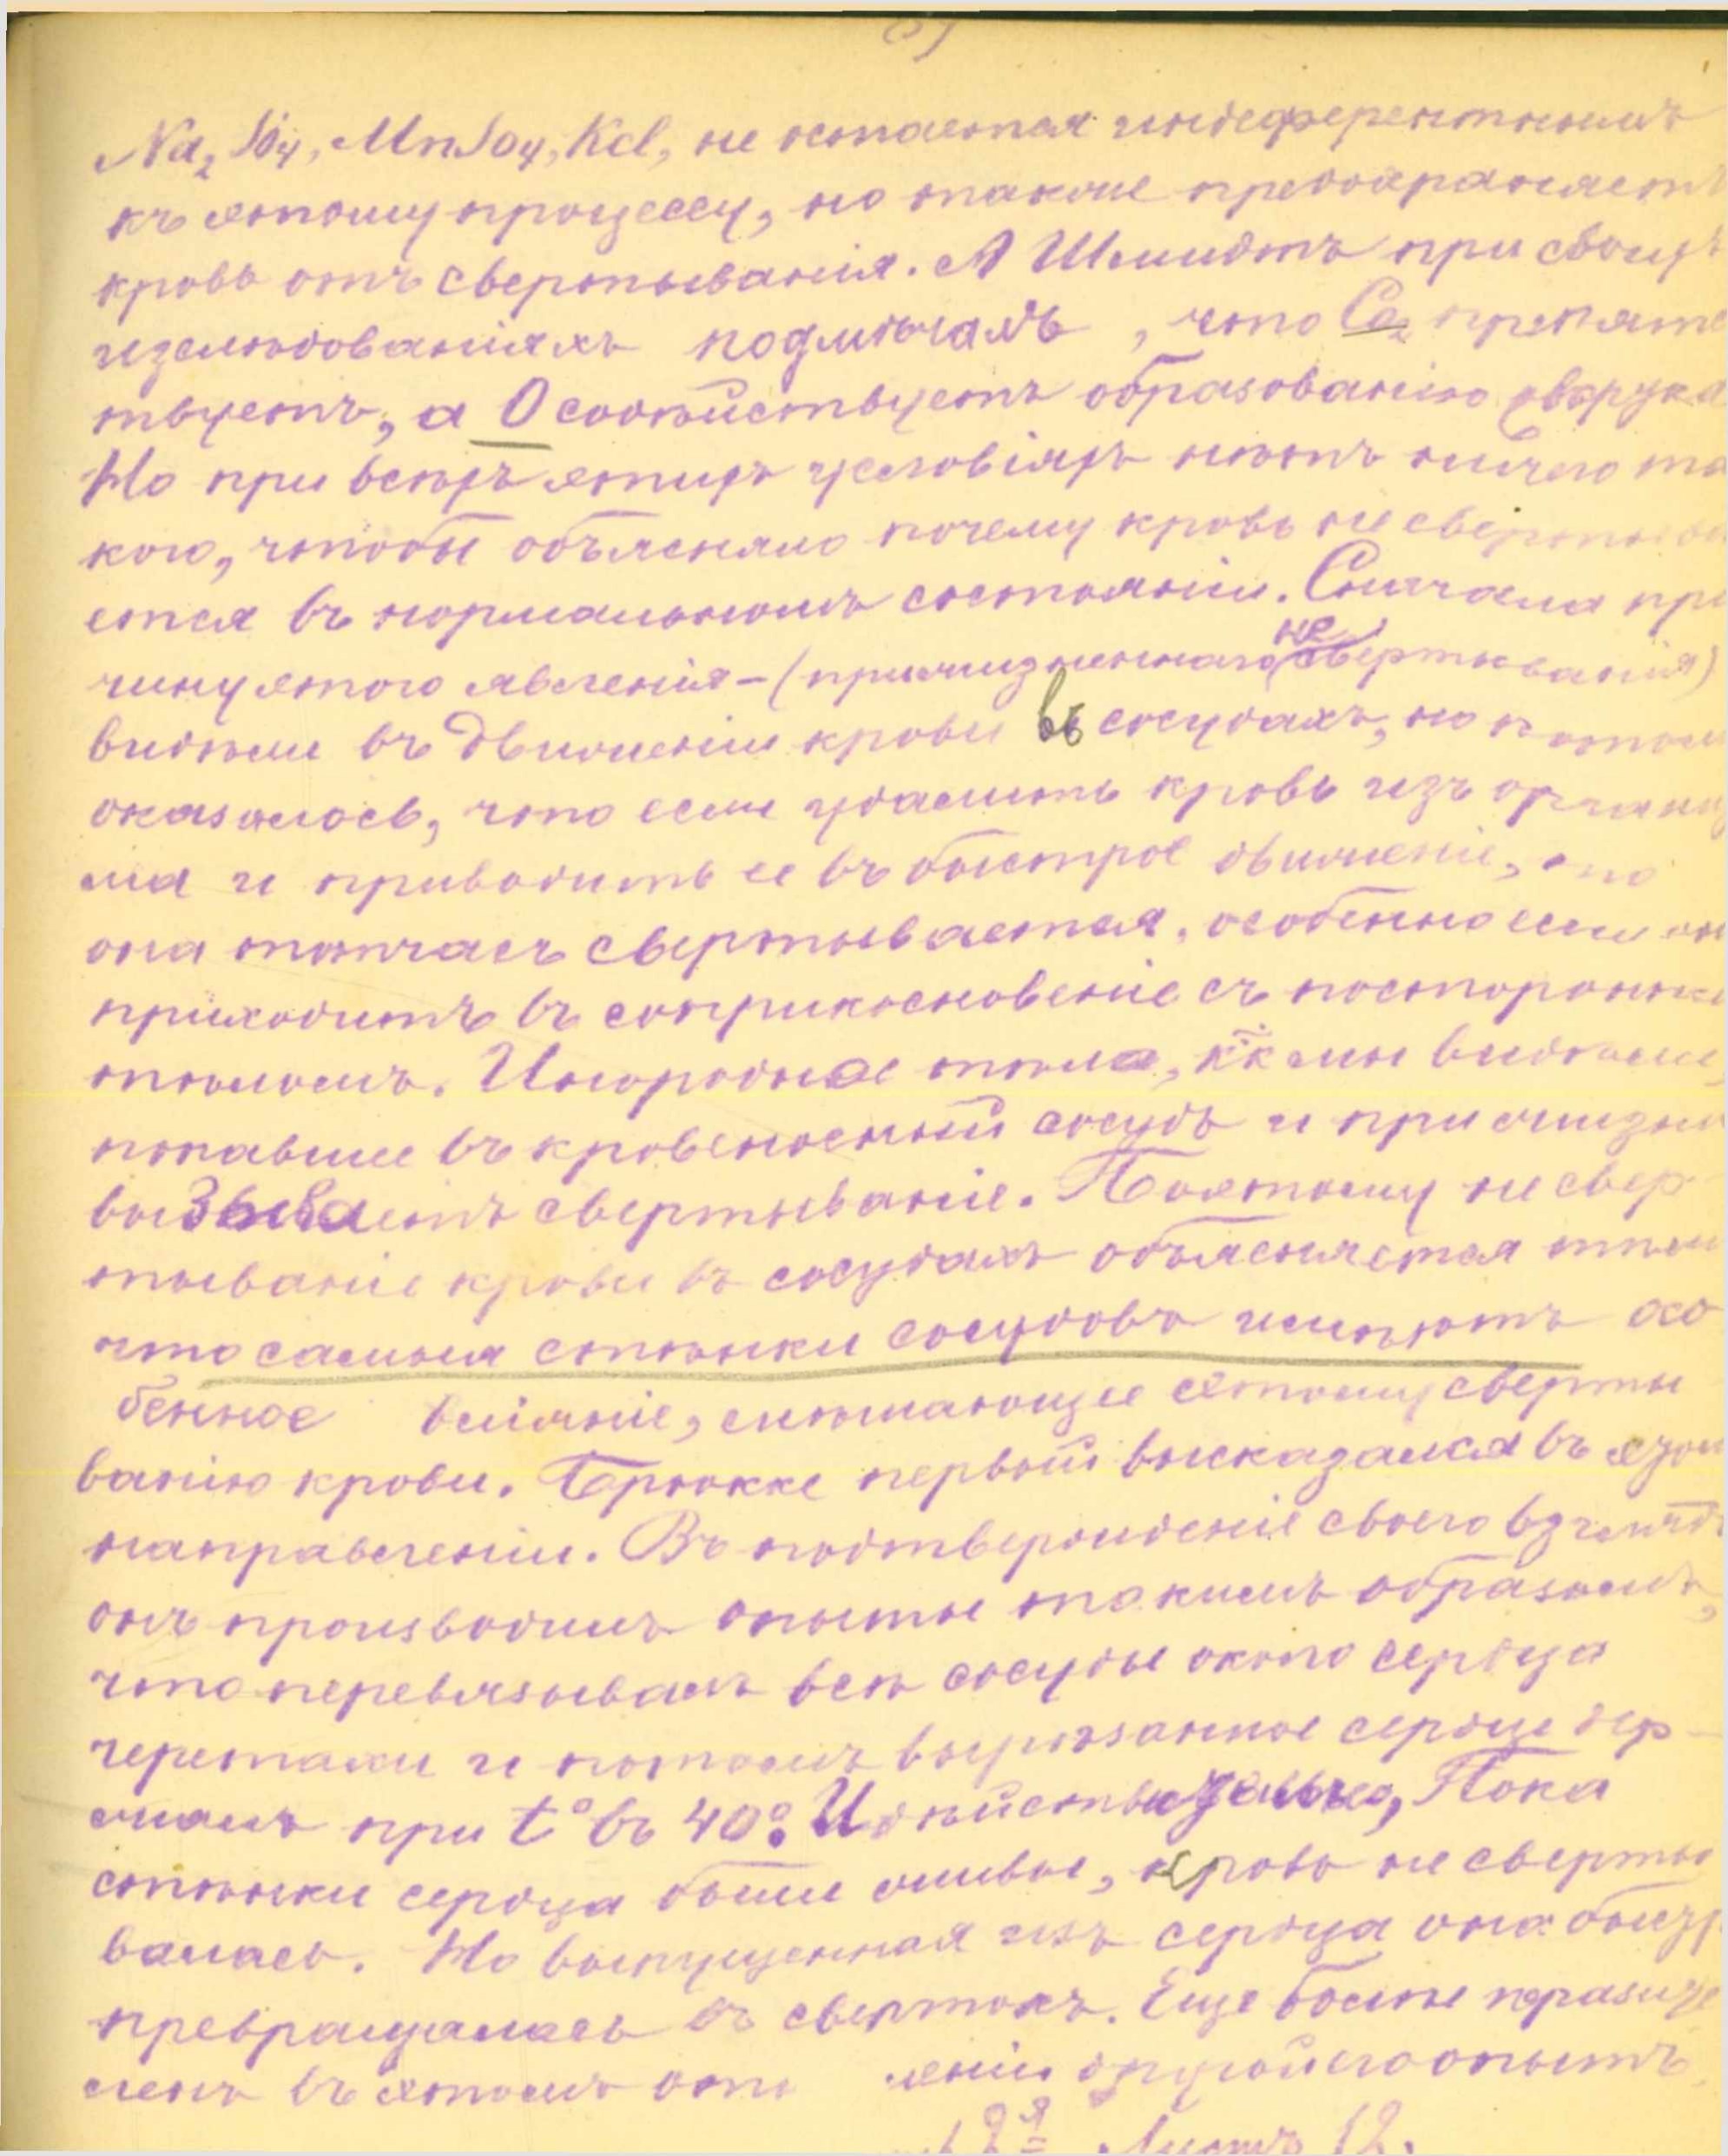 Na₂So₄, MnSo₄, Kcl, не остается индеферентнымъ
къ этому процессу, но также предохраняетъ
кровь отъ свертыванія. А Шмидтъ при своихъ
изслѣдованіяхъ подмѣчалъ, что Са₂ препятс
твуетъ, а О содѣйствуетъ образованію
Но при всѣхъ этихъ условіяхъ нѣтъ ничего та
кого, чтобы объясняло почему кровь не свертыва
ется въ нормальномъ состояніи. Сначала при
чину этого явленія – (прижизненнаго не свертыванія)
видѣли въ движеніи крови въ сосудахъ, но потомъ
оказалось, что если удалить кровь изъ организ
ма и приводить ее въ быстрое движеніе, то
она тотчасъ свертывается, особенно если она
приходитъ въ соприкосновеніе съ посторонни
тѣломъ. Инородное тѣло, кк мы видѣли,
попавшее въ кровеносный сосудъ и при жизни
вызываетъ свертываніе. Поэтому не свер-
тываніе крови въ сосудахъ объясняется тѣмъ
что самыя стѣнки сосудовъ имѣютъ осо
бенное вліяніе, мѣшающее этому сверты
ванію крови. Брюкке первый высказался въ этом
направленіи. Въ подтвержденіе своего взгляда
онъ производилъ опыты такимъ образомъ,
что перевязывалъ всѣ сосуды около сердца
черепахи и потомъ вырѣзанное сердце дер-
жалъ при t° въ 40°. И дѣйствительно, Пока
стѣнки сердца были живые, кровь не сверты
валась. Но выпущенная изъ сердца она быстр
превращалась въ свертокъ. Еще болѣе поразите
ленъ въ этомъ отно шеніи другой его опытъ.
Листъ 12.